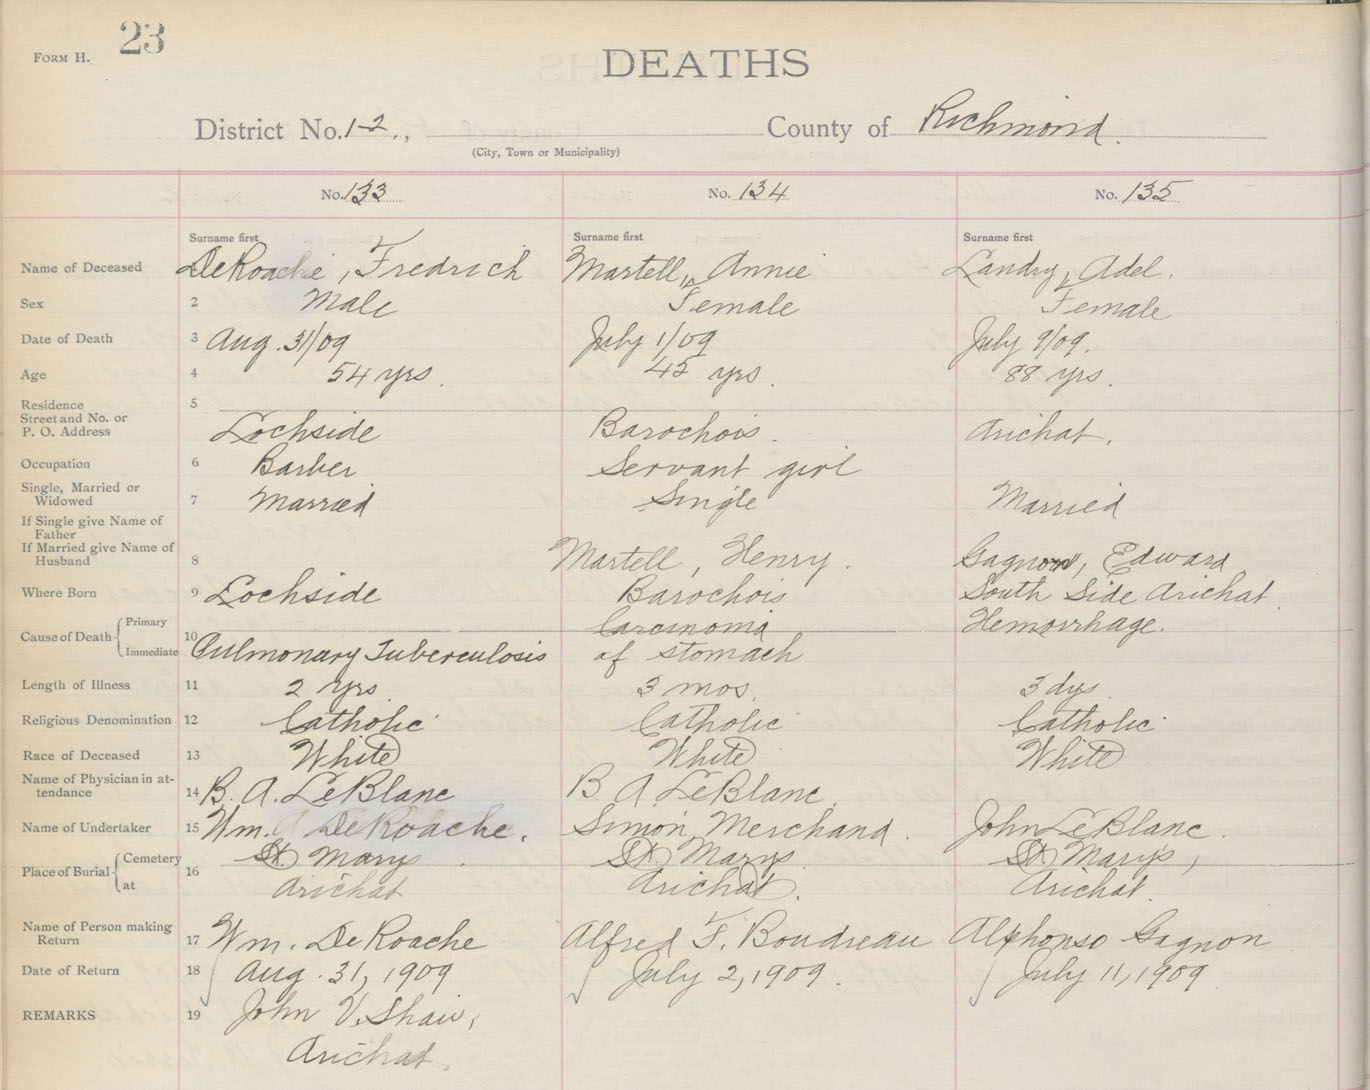 FORM H. 23
DEATHS
District No. 1-2, County of Richmond.
(City, Town or Municipality)
No. 133 No. 134 No. 135
Surname first Surname first Surname first
Name of Deceased DeRoache, Fredrich Martell, Annie Landry, Adel.
Sex 2 Male Female Female
Date of Death 3 Aug. 31/09 July 1/09 July 9/09.
Age 4 54 yrs. 45 yrs. 88 yrs.
Residence 5
Street and No. or
P. O. Address Lochside Barochois. Arichat.
Occupation 6 Barber Servant girl
Single, Married or
Widowed 7 Married Single Married
If Single give Name of
Father
If Married give Name of
Husband 8 Martell, Henry. Gagnon, Edward
Where Born 9 Lochside Barochois South Side Arichat.
Cause of Death Primary 10 Carcinoma Hemorrhage.
Immediate Pulmonary Tuberculosis of stomach
Length of Illness 11 2 yrs. 3 mos. 3 dys.
Religious Denomination 12 Catholic Catholic Catholic
Race of Deceased 13 White White White
Name of Physician in at-
tendance 14 B. A. LeBlanc B A LeBlanc.
Name of Undertaker 15 Wm. DeRoache. Simon Merchand. John LeBlanc.
Place of Burial Cemetery 16 St Marys. St Marys St Mary's,
at Arichat Arichat. Arichat.
Name of Person making
Return 17 Wm. DeRoache Alfred F. Boudreau Alphonso Gagnon
Date of Return 18 Aug. 31, 1909 July 2, 1909. July 11, 1909
REMARKS 19 John V. Shaw,
Arichat.